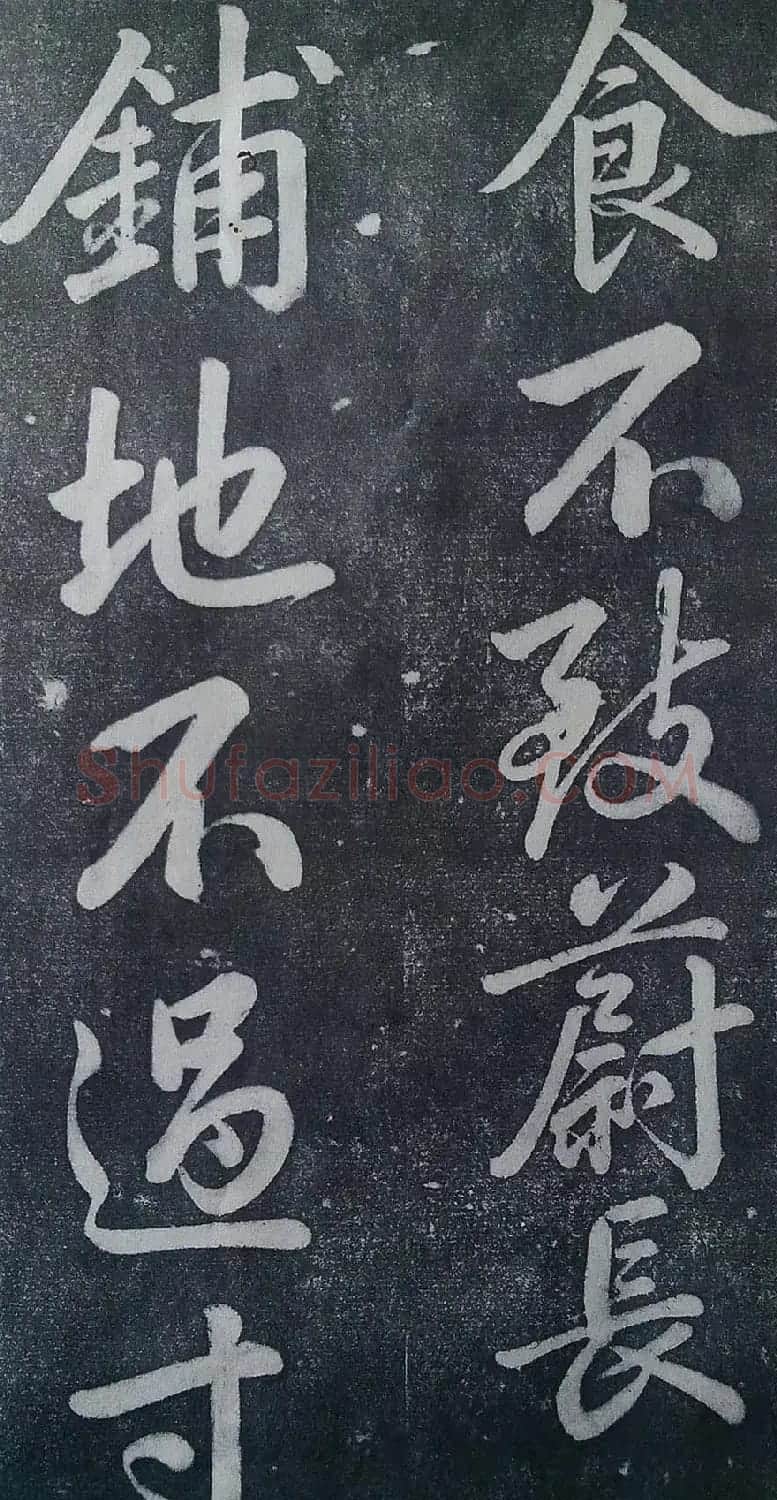 食不致蔚長
鋪地不過寸
Shufaziliao.COM